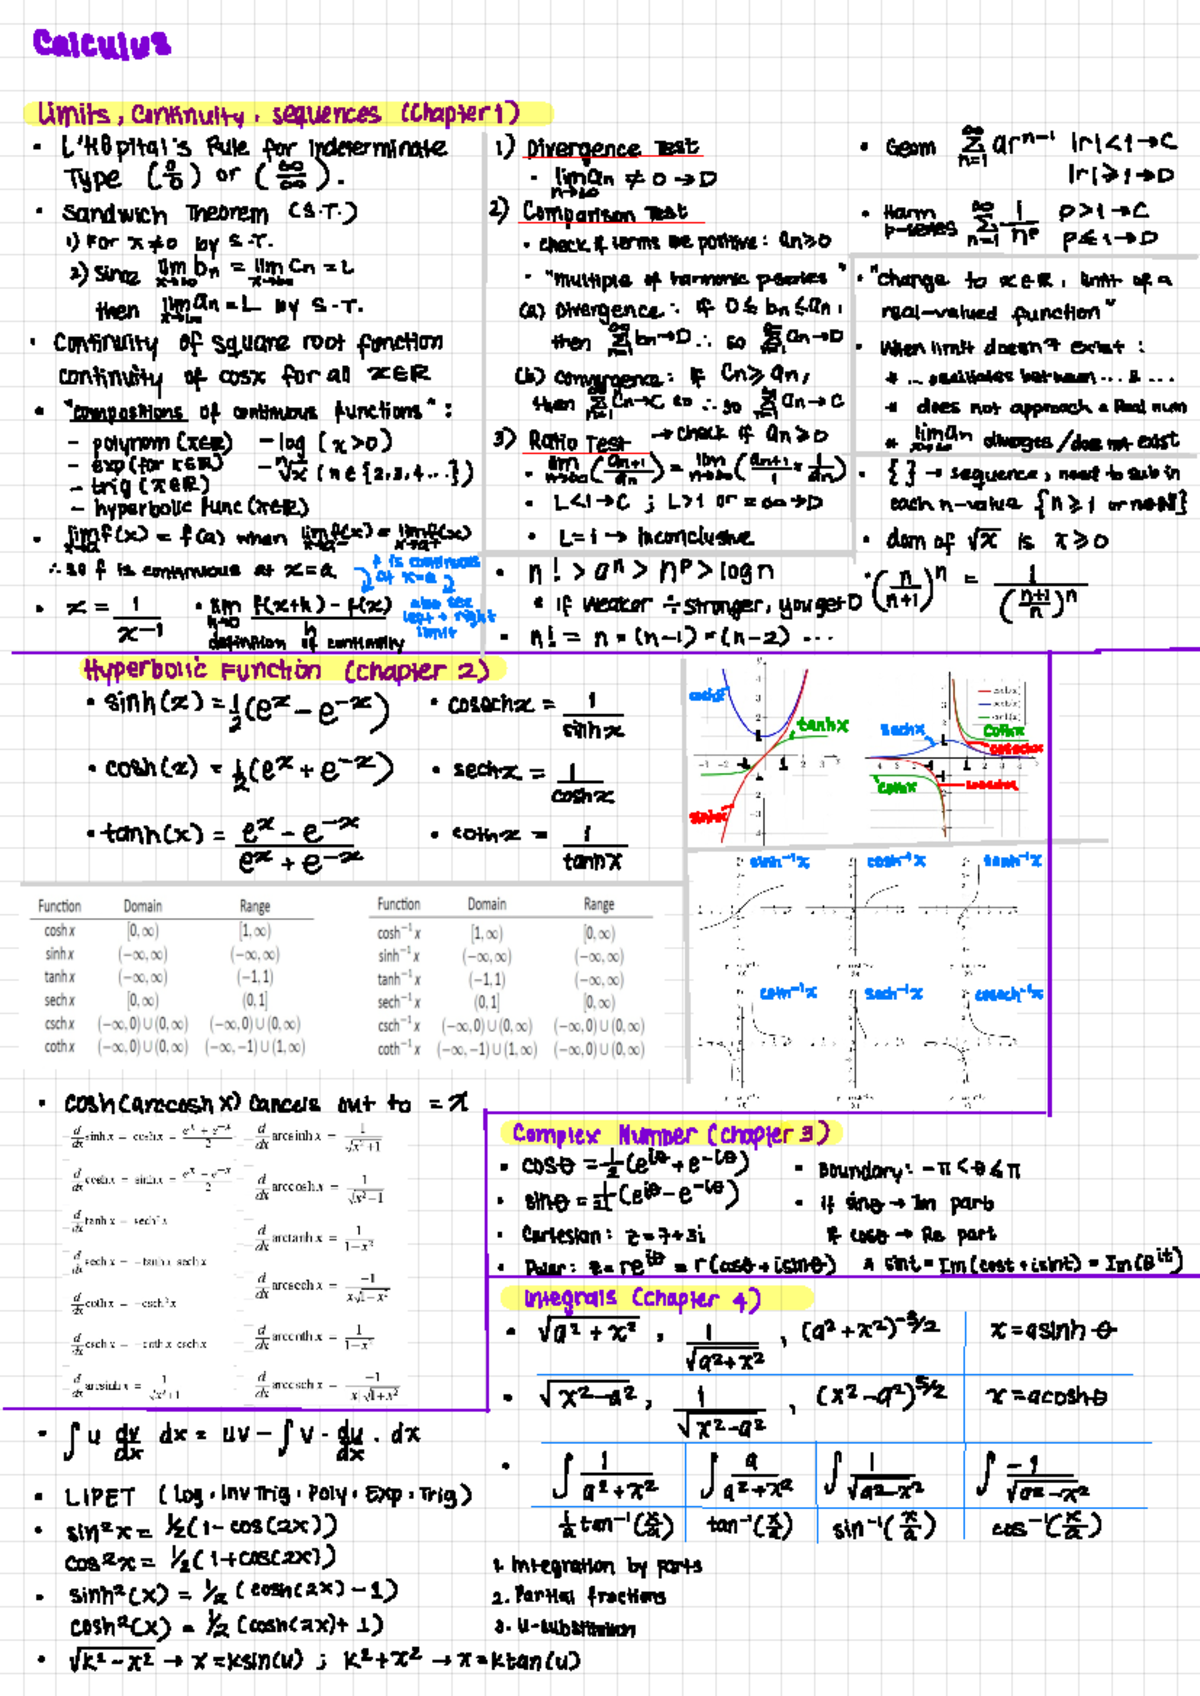 Calculus
Limits, Continuity, sequences (Chapter 1)
• L'Hôpital's Rule for Indeterminate
Type (0/0) or (∞/∞).
• Sandwich Theorem (S.T.)
1) For x≠0 by S.T.
2) Since lim bn = lim Cn = L
then lim an = L by S.T.
• Continuity of square root function
continuity of cosx for all x∈R
• "compositions of continuous functions":
- polynom (x∈R) - log (x>0)
- exp (for x∈R) - ⁿ√x (n∈{2,3,4...})
- trig (x∈R)
- hyperbolic func (x∈R)
• lim x→a f(x) = f(a) when lim x→a⁻ f(x) = lim x→a⁺ f(x)
∴ so f is continuous at x=a
f is continuous
at x=a
also see
left + right
limit
• x = 1/(x-1) • lim h→0 (f(x+h) - f(x))/h
definition of continuity
1) Divergence Test
• lim n→∞ an ≠ 0 → D
2) Comparison Test
• check if terms are positive: an≥0
• "multiple of harmonic p-series"
(a) Divergence: if 0≤bn≤an,
then ∞Σn=1 bn→D ∴ so ∞Σn=1 an→D
(b) Convergence: if Cn≥an,
then ∞Σn=1 Cn→C so ∴ so ∞Σn=1 an→C
3) Ratio Test → check if an≥0
• lim n→∞ (an+1/an) = lim n→∞ (an+1/1 × 1/an)
• L<1→C ; L>1 or = ∞→D
• L=1 → inconclusive
• n! > aⁿ > nᵖ > log n
* if weaker ÷ stronger, you get 0
• n! = n × (n-1) × (n-2) ...
• Geom ∞Σn=1 arⁿ⁻¹ |r|<1→C
|r|≥1→D
• Harm p-series ∞Σn=1 1/nᵖ p>1→C
p≤1→D
• "change to x∈R, limit of a
real-valued function"
• When limit doesn't exist:
* ... oscillates between ... & ...
* does not approach a Real num
* lim an diverges/does not exist
• { } → sequence, need to sub in
each n-value {n≥1 or n∈N}
• dom of √x is x≥0
• (n/(n+1))ⁿ = 1/((n+1)/n)ⁿ
Hyperbolic Function (Chapter 2)
• sinh(x) = ½(eˣ - e⁻ˣ) • cosechx = 1/sinhx
• cosh(x) = ½(eˣ + e⁻ˣ) • sechx = 1/coshx
• tanh(x) = (eˣ - e⁻ˣ)/(eˣ + e⁻ˣ) • cothx = 1/tanhx
coshx
tanhx
sinhx
sechx
cothx
cosechx
cothx
cosechx
sinh⁻¹x cosh⁻¹x tanh⁻¹x
coth⁻¹x sech⁻¹x cosech⁻¹x
Function Domain Range
cosh x [0,∞) [1,∞)
sinh x (−∞,∞) (−∞,∞)
tanh x (−∞,∞) (−1,1)
sech x [0,∞) (0,1]
csch x (−∞,0)∪(0,∞) (−∞,0)∪(0,∞)
coth x (−∞,0)∪(0,∞) (−∞,−1)∪(1,∞)
Function Domain Range
cosh⁻¹ x [1,∞) [0,∞)
sinh⁻¹ x (−∞,∞) (−∞,∞)
tanh⁻¹ x (−1,1) (−∞,∞)
sech⁻¹ x (0,1] [0,∞)
csch⁻¹ x (−∞,0)∪(0,∞) (−∞,0)∪(0,∞)
coth⁻¹ x (−∞,−1)∪(1,∞) (−∞,0)∪(0,∞)
• cosh(arccosh x) cancels out to = x
d/dx sinh x = cosh x = (eˣ + e⁻ˣ)/2
d/dx cosh x = sinh x = (eˣ − e⁻ˣ)/2
d/dx tanh x = sech² x
d/dx sech x = −tanh x sech x
d/dx coth x = −csch² x
d/dx csch x = −coth x csch x
d/dx arcsinh x = 1/√(x²+1)
d/dx arcsinh x = 1/√(x²+1)
d/dx arccosh x = 1/√(x²−1)
d/dx arctanh x = 1/(1−x²)
d/dx arcsech x = −1/(x√(1−x²))
d/dx arccoth x = 1/(1−x²)
d/dx arccsch x = −1/(x√(1+x²))
Complex Number (Chapter 3)
• cosθ = ½(e^iθ + e^-iθ) • Boundary: -π<θ≤π
• sinθ = (e^iθ - e^-iθ) • if sinθ → Im part
• Cartesian: z = 7+3i if cosθ → Re part
• Polar: z = re^iθ = r(cosθ + isinθ) * sint = Im(cost + isint) = Im(e^it)
Integrals (Chapter 4)
• √(a²+x²), 1/√(a²+x²), (a²+x²)^-3/2 x = asinhθ
• √(x²-a²), 1/√(x²-a²), (x²-a²)^5/2 x = acoshθ
• ∫ 1/(a²+x²) ∫ a/(a²+x²) ∫ 1/√(a²-x²) ∫ -1/√(a²-x²)
1/a tan⁻¹(x/a) tan⁻¹(x/a) sin⁻¹(x/a) cos⁻¹(x/a)
1. Integration by parts
2. Partial fractions
3. U-substitution
• ∫ u dv/dx dx = uv - ∫ v · du/dx · dx
• LIPET (Log, Inv Trig, Poly, Exp, Trig)
• sin²x = ½(1 - cos(2x))
cos²x = ½(1 + cos(2x))
• sinh²(x) = ½(cosh(2x) - 1)
cosh²(x) = ½(cosh(2x) + 1)
• √(k²-x²) → x = ksin(u) ; k²+x² → x = ktan(u)